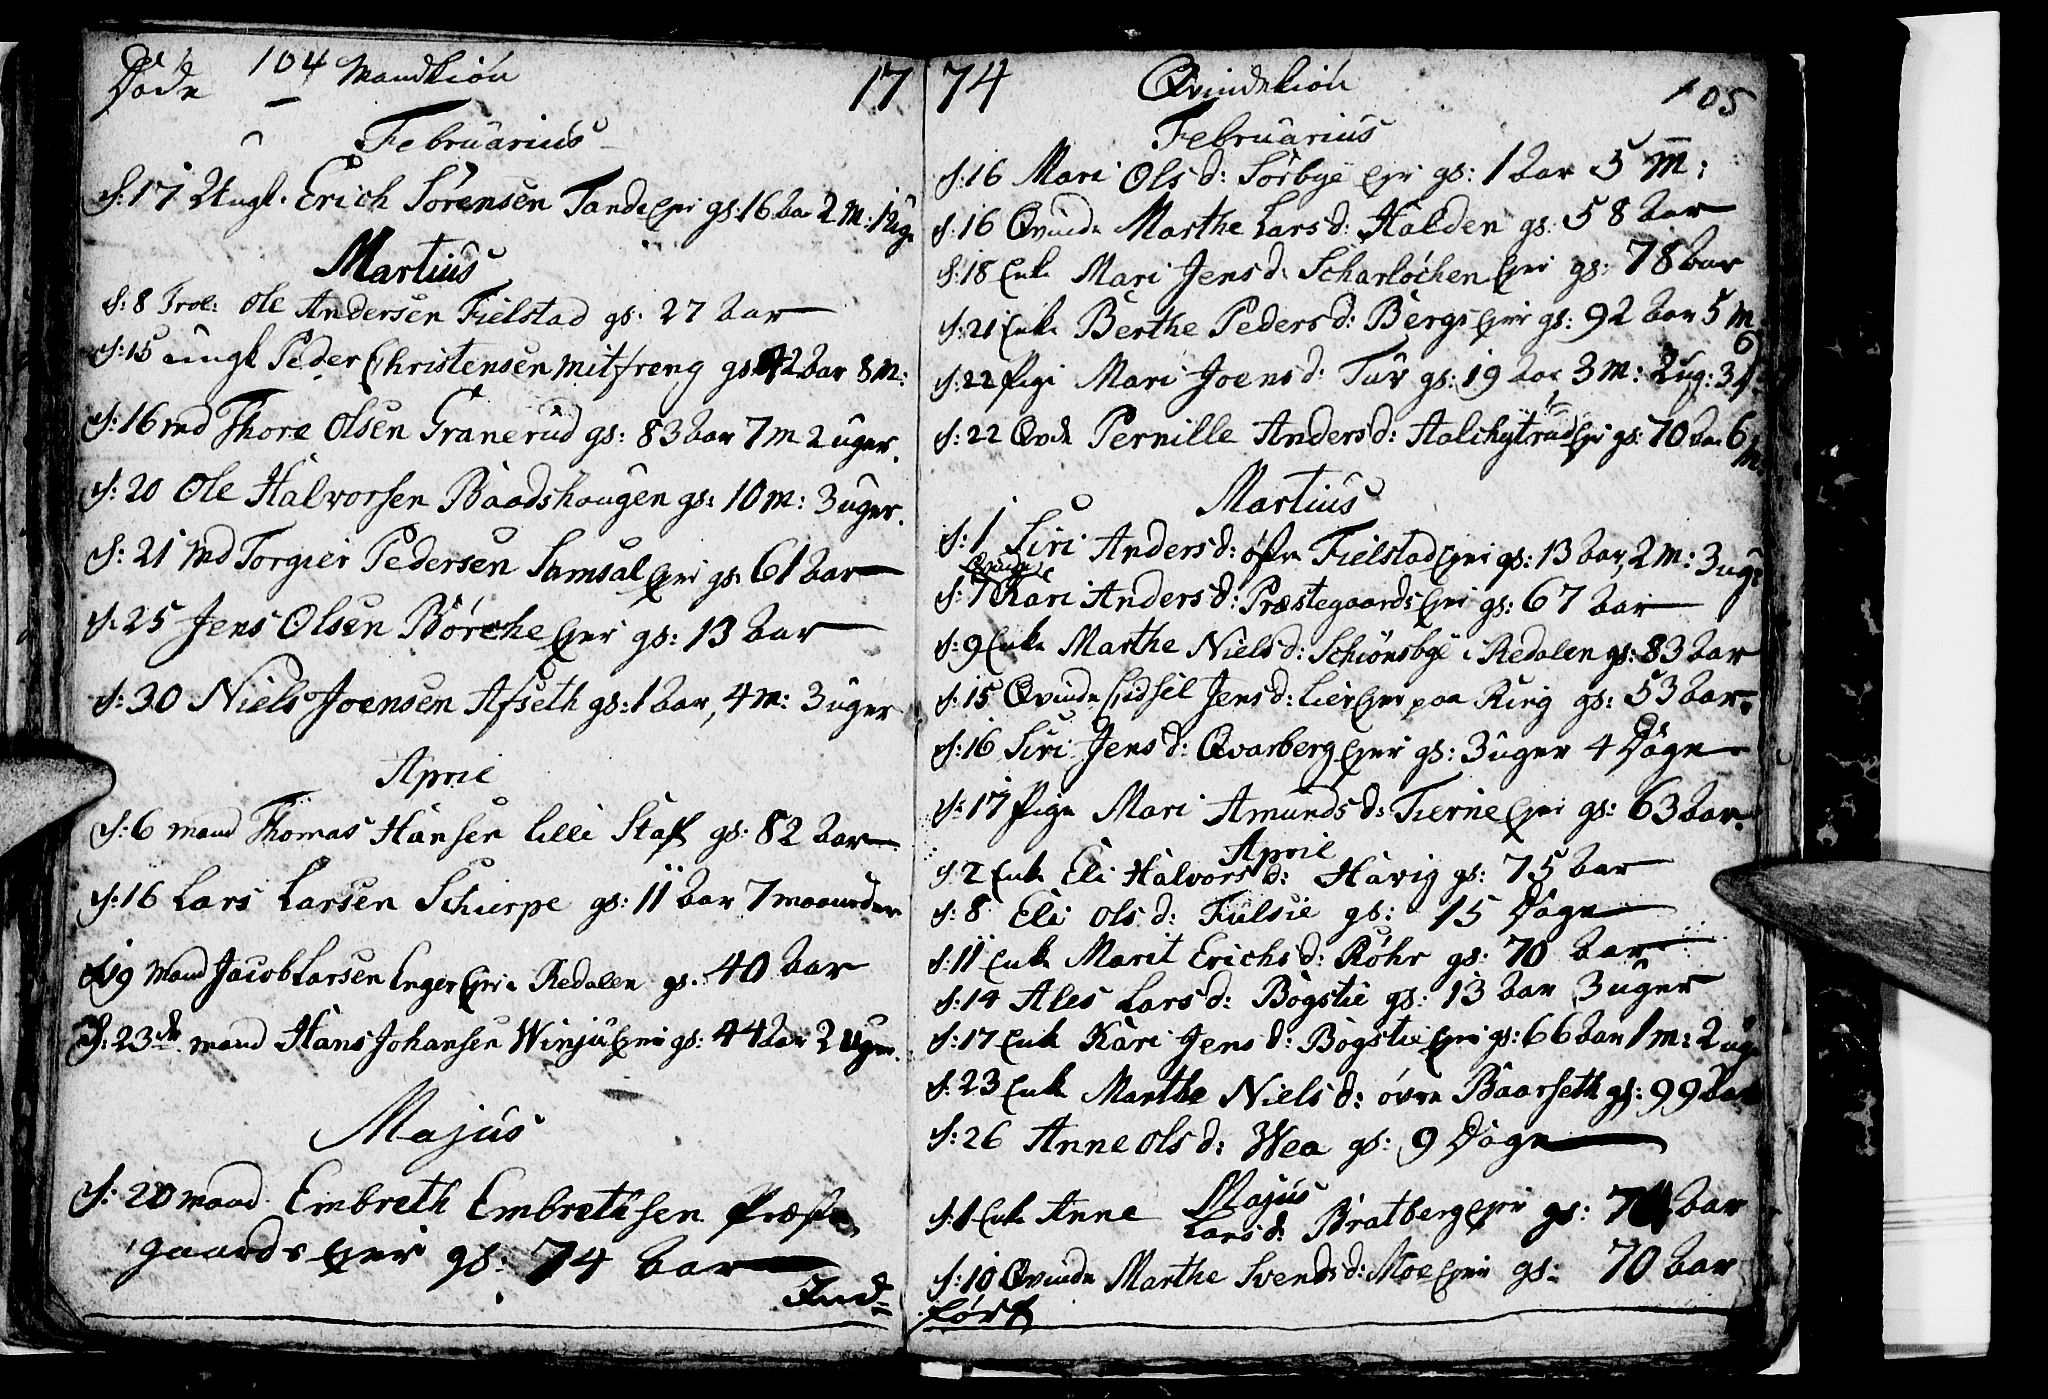 Døde 104 Mandkiön 17
Februarius
d: 17 Ungk. Erich Sörensen Tande Eier gs: 16 aar 2 M: 1 Ug.
Martius
d: 8 Trol: Ole Andersen Fielstad gs: 27 aar
d: 15 ungk Peder Christensen Mitfreng gs 42 aar 8 M:
d: 16 md Thore Olsen Granerud gs: 83 aar 7 M 2 uger.
d: 20 Ole Halvorsen Baadshaugen gs: 10 M: 3 uger.
d: 21 Md Torgier Pedersen Samsal Eier gs: 61 aar
d. 25 Jens Olsen Börche Eier gs: 13 aar
d: 30 Niels Joensen Afseth gs: 1 aar, 4 M: 3 uger
April
d: 6 mand Thomas Hansen lilli Staf gs: 82 aar
d: 16 Lars Larsen Schierpe gs: 11 aar 7 maaneder
d 19 Mand Jacob Larsen Enger Eier i Redalen gs. 40 aar
d: 23de mand Hans Johansen Winju Eier gs: 44 aar 2 Uger.
Majus
d: 20 mand Embreth Embrethsen Præste
gaards Eier gs: 74 aar
Ind=
74 Qvindekiön 105
Februarius
d: 16 Mari Olsd: Sörbye Eier gs: 1 aar 5 M:
d: 16 Qvinde Marthe Larsd: Halden gs: 58 aar
d: 18 Enke Mari Jensd: Scharlöchen Eier gs: 78 aar
d: 21 Enke Berthe Pedersd: Bergs Eier gs: 92 aar 5 M
d: 22 Pige Mari Joensd: Tuv gs: 19 aar 3 M: 2 ug: 3 d:
d: 22 Qvde Pernille Andersd: Aalchytrud Eier gs: 70 aar 6 M
Martius
d: 1 Siri Andersd: öfre Fielstad Eier gs: 13 aar, 2 M: 3 ug:
Qvinde
d: 7 Kari Andersd: Præstegaards Eier gs: 67 aar
d: 9 Enke Marthe Nielsd: Schiönsbye i Redalen gs: 83 aar
d: 15 Qvinde Eidsel Jensd: Lier Eier paa Ring gs: 53 aar.
d: 16 Siri Jensd: Qvarberg Eier gs: 3 uger 4 Dage
d: 17 Pige Mari Amundsd: Tierne Eier gs: 63 aar.
April
d: 2 Enke Eli Halvorsd: Havig gs: 75 aar
d: 8 Eli Olsd: Fulsie gs: 15 Dage
d: 11 Enke Marit Erichsd: Röhr gs: 70 aar
d: 14 Ales Larsd: Bogstie gs: 13 aar 3 uger
d: 17 Enke Kari Jensd: Bogstie Eier gs: 66 aar 1 M: 2 ug
d: 23 Enke Marthe Nielsd: övre Baarseth gs: 99 aar
d: 26 Anne Olsd: Wea gs: 9 Dage
Majus
d: 1 Enke Anne Larsd: Bratberg Eier gs: aar
d: 10 Qvinde Marthe Svendsd: Moe Eier gs: 70 aar
ført